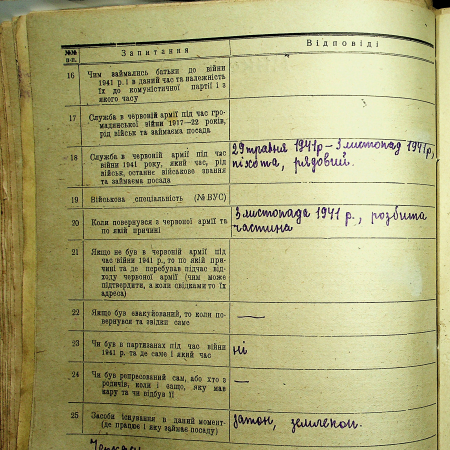 №№ п-п.
Запитання
Відповіді
16
Чим займались батьки до війни
1941 р. і в даний час та належність
їх до комуністичної партії і з
якого часу
17
Служба в червоній армії під час гро-
мадянської війни 1917—22 років,
рід військ та займаєма посада
18
Служба в червоній армії під час
війни 1941 року, який час, рід
військ, останнє військове звання
та займаєма посада
29 травня 1941р – 3 листопад 1941р,
піхота, рядовий.
19
Військова спеціальність (№ ВУС)
20
Коли повернувся з червоної армії та
по якій причині
3 листопада 1941 р., розбита
частина
21
Якщо не був в червоній армії під
час війни 1941 р., то по якій при-
чині та де перебував підчас від-
ходу червоної армії (чим може
підтвердити, а коли свідками то їх
адреса)
22
Якщо був евакуйований, то коли по-
вернувся та звідки саме
—
23
Чи був в партизанах під час війни
1941 р. та де саме і який час
ні
24
Чи був репресований сам, або хто з
родичів, коли і защо, яку мав
кару та чи відбув її
—
25
Засоби існування в даний момент-
(де працює і яку займає посаду)
затон, землекоп.